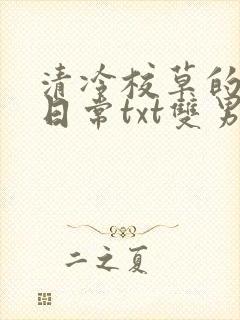 清冷校草的
日常txt雙男
二之夏